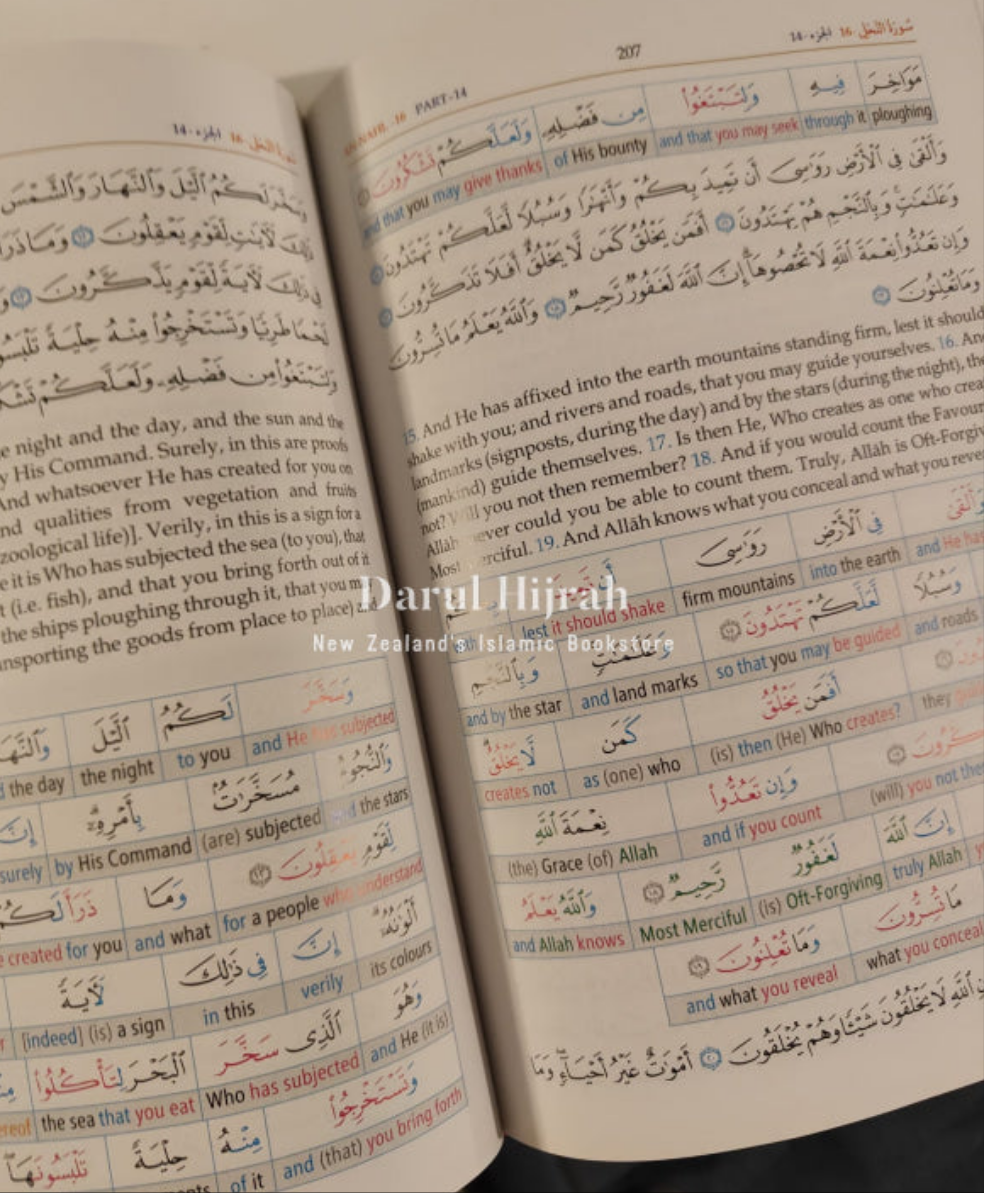 سورة النحل ١٦ الجزء ١٤
وَسَخَّرَ لَكُمُ الَّيْلَ وَالنَّهَارَ وَالشَّمْسَ
ذَٰلِكَ لَآيَٰتٍ لِّقَوْمٍ يَعْقِلُونَ ١٢ وَمَا ذَرَأَ
فِى ذَٰلِكَ لَآيَةً لِّقَوْمٍ يَذَّكَّرُونَ ١٣
لَحْمًا طَرِيًّا وَتَسْتَخْرِجُوا۟ مِنْهُ حِلْيَةً
وَلِتَبْتَغُوا۟ مِن فَضْلِهِۦ وَلَعَلَّكُمْ
night and the day, and the sun and the
His Command. Surely, in this are proofs
And whatsoever He has created for you on
nd qualities from vegetation and fruits
zoological life)]. Verily, in this is a sign for a
it is Who has subjected the sea (to you), that
(i.e. fish), and that you bring forth out of it
the ships ploughing through it, that you m
nsporting the goods from place to place) and
وَسَخَّرَ لَكُمُ الَّيْلَ وَالنَّهَا
and He has subjected to you the night the day
وَالنُّجُومُ مُسَخَّرَٰتٌۢ بِأَمْرِهِۦٓ إِنَّ
and the stars (are) subjected by His Command surely
لِّقَوْمٍ يَعْقِلُونَ ١٢ وَمَا ذَرَأَ لَكُمْ
for a people who understand and what created for you
أَلْوَٰنُهُۥٓ إِنَّ فِى ذَٰلِكَ لَآيَةً
its colours verily in this [indeed] (is) a sign
وَهُوَ الَّذِى سَخَّرَ الْبَحْرَ لِتَأْكُلُوا۟
and He (it is) Who has subjected the sea that you eat
وَتَسْتَخْرِجُوا۟ مِنْهُ حِلْيَةً تَلْبَسُونَهَا
and (that) you bring forth of it
AN-NAHL. 16 PART-14 207 سورة النحل ١٦ الجزء ١٤
مَوَاخِرَ فِيهِ وَلِتَبْتَغُوا۟ مِن فَضْلِهِۦ وَلَعَلَّكُمْ تَشْكُرُونَ
ploughing through it and that you may seek of His bounty and that you may give thanks
وَأَلْقَىٰ فِى الْأَرْضِ رَوَٰسِىَ أَن تَمِيدَ بِكُمْ وَأَنْهَٰرًا وَسُبُلًا لَّعَلَّكُمْ تَهْتَدُونَ ١٥
وَعَلَٰمَٰتٍ وَبِالنَّجْمِ هُمْ يَهْتَدُونَ ١٦ أَفَمَن يَخْلُقُ كَمَن لَّا يَخْلُقُ أَفَلَا تَذَكَّرُونَ ١٧
وَإِن تَعُدُّوا۟ نِعْمَةَ اللَّهِ لَا تُحْصُوهَآ إِنَّ اللَّهَ لَغَفُورٌ رَّحِيمٌ ١٨ وَاللَّهُ يَعْلَمُ مَا تُسِرُّونَ
وَمَا تُعْلِنُونَ ١٩
15. And He has affixed into the earth mountains standing firm, lest it should
shake with you; and rivers and roads, that you may guide yourselves. 16. And
landmarks (signposts, during the day) and by the stars (during the night), the
(mankind) guide themselves. 17. Is then He, Who creates as one who crea
not? Will you not then remember? 18. And if you would count the Favour
Allâh never could you be able to count them. Truly, Allâh is Oft-Forgiv
Most Merciful. 19. And Allâh knows what you conceal and what you reve
وَأَلْقَىٰ فِى الْأَرْضِ رَوَٰسِىَ أَن تَمِيدَ
and He has into the earth firm mountains lest it should shake
Darul Hijrah
New Zealand's Islamic Bookstore
وَسُبُلًا لَّعَلَّكُمْ تَهْتَدُونَ ١٥ وَعَلَٰمَٰتٍ وَبِالنَّجْمِ
and roads so that you may be guided and land marks and by the star
أَفَمَن يَخْلُقُ كَمَن لَّا يَخْلُقُ
they (is) then (He) Who creates? as (one) who creates not
تَذَكَّرُونَ ١٧ وَإِن تَعُدُّوا۟ نِعْمَةَ اللَّهِ
(will) you not then and if you count (the) Grace (of) Allah
إِنَّ اللَّهَ لَغَفُورٌ رَّحِيمٌ ١٨ وَاللَّهُ يَعْلَمُ
truly Allah (is) Oft-Forgiving Most Merciful and Allah knows
مَا تُسِرُّونَ وَمَا تُعْلِنُونَ ١٩
what you conceal and what you reveal
اللَّهِ لَا يَخْلُقُونَ شَيْـًٔا وَهُمْ يُخْلَقُونَ ٢٠ أَمْوَٰتٌ غَيْرُ أَحْيَآءٍ وَمَا